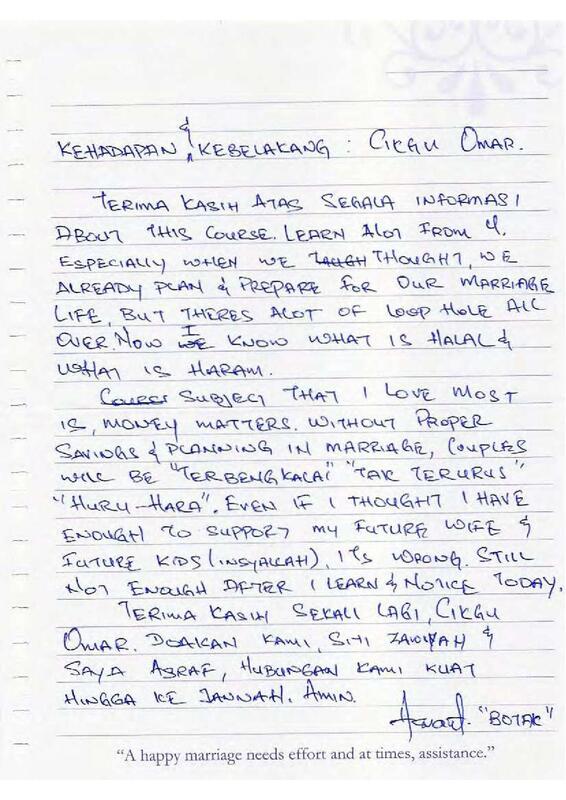 &
KEHADAPAN KEBELAKANG : CIKGU OMAR.
TERIMA KASIH ATAS SEGALA INFORMASI
ABOUT THIS COURSE. LEARN ALOT FROM U.
ESPECIALLY WHEN WE TAUGH THOUGHT, WE
ALREADY PLAN & PREPARE FOR OUR MARRIAGE
LIFE, BUT THERES ALOT OF LOOP HOLE ALL
OVER. NOW WE I KNOW WHAT IS HALAL &
WHAT IS HARAM.
COURSE SUBJECT THAT I LOVE MOST
IS, MONEY MATTERS. WITHOUT PROPER
SAVINGS & PLANNING IN MARRIAGE, COUPLES
WILL BE "TERBENGKALAI" "TAK TERURUS"
"HURU-HARA". EVEN IF I THOUGHT I HAVE
ENOUGH TO SUPPORT MY FUTURE WIFE &
FUTURE KIDS (INSYALLAH), ITS WRONG. STILL
NOT ENOUGH AFTER I LEARN & NOTICE TODAY.
TERIMA KASIH SEKALI LAGI, CIKGU
OMAR. DOAKAN KAMI, SITI ZAWIYAH &
SAYA ASRAF, HUBUNGAN KAMI KUAT
HINGGA KE JANNAH. AMIN.
"BOTAK"
"A happy marriage needs effort and at times, assistance."